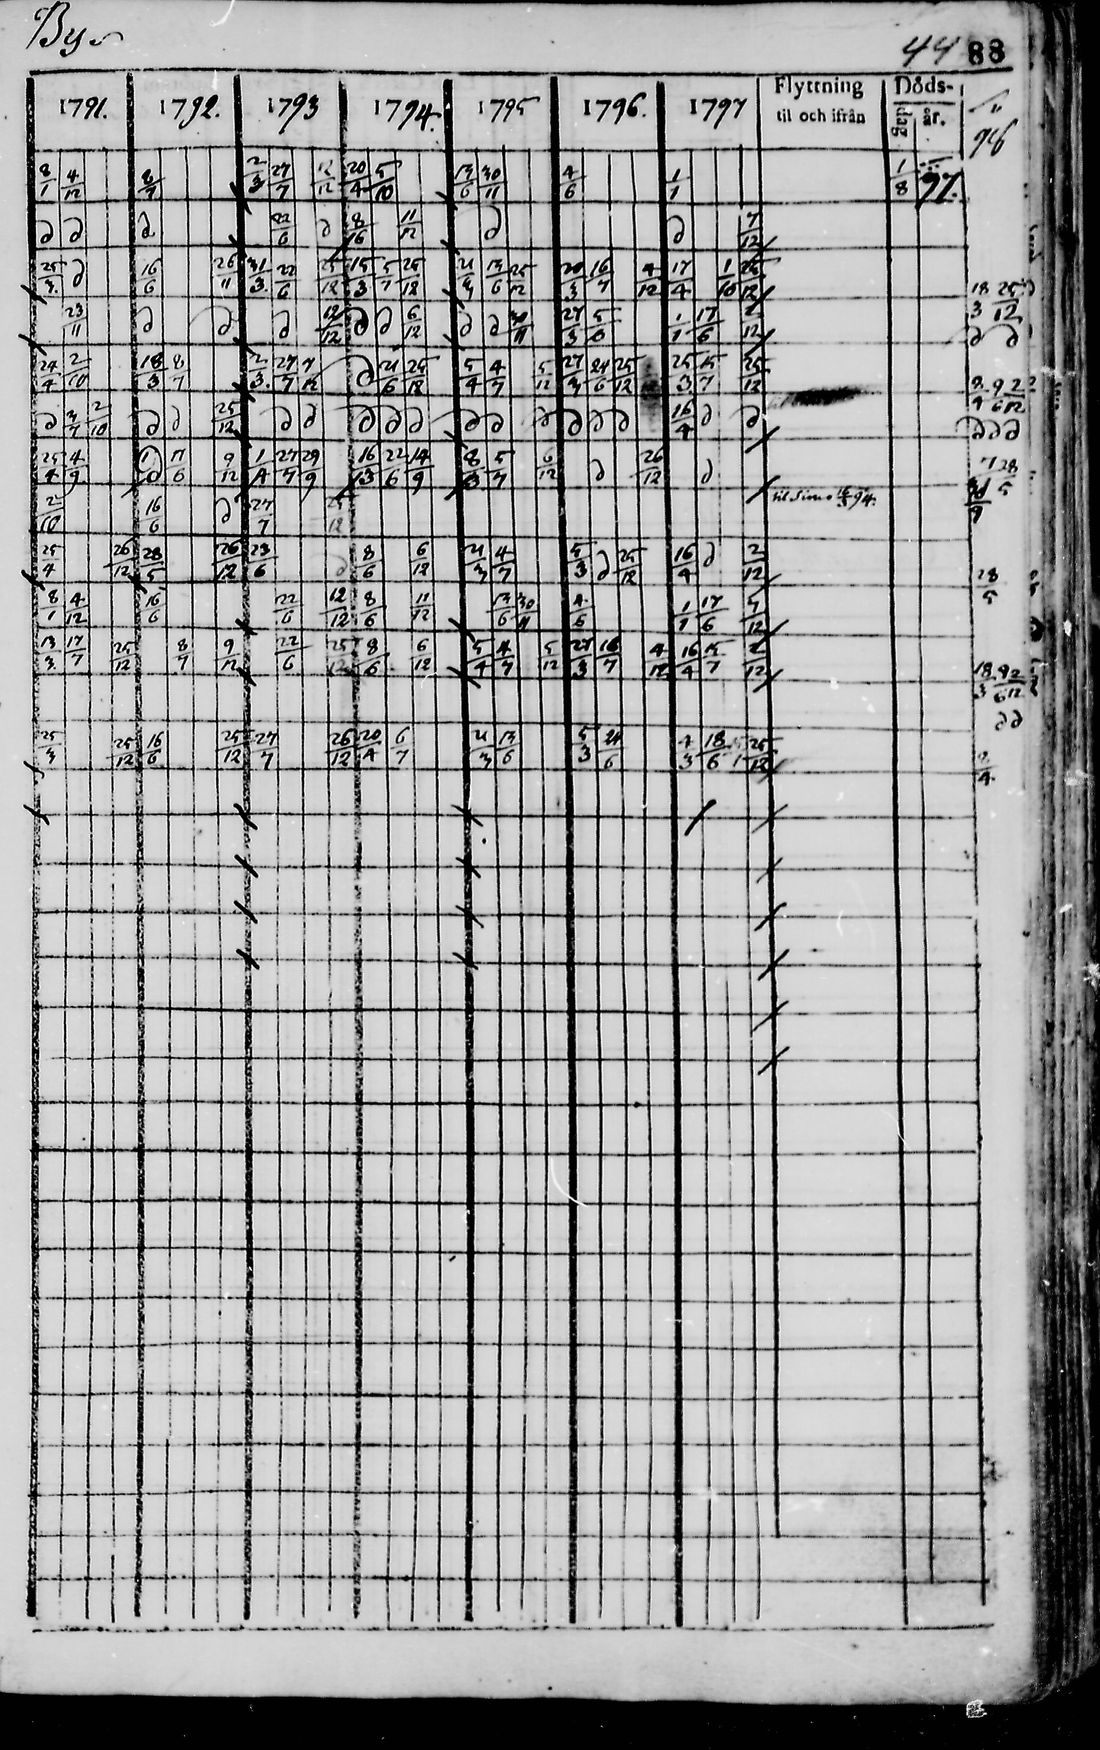 By
44 88
1791. 1792. 1793 1794. 1795 1796. 1797 Flyttning til och ifrån Döds- dag år. 98
8/1 4/12 8/7 2/3 27/7 12/12 20/4 5/10 13/6 30/11 4/6 1/1 1/8 97.
∂ ∂ ∂ 22/6 ∂ 8/16 11/12 ∂ ∂ 7/12
25/3. ∂ 16/6 26/11 31/3. 22/6 25/12 15/3 5/7 25/12 21/3 13/6 25/12 20/3 16/7 4/12 17/4 1/10 25/12 18/3 25/12
23/11 ∂ ∂ ∂ 12/12 ∂ ∂ 6/12 ∂ ∂ 30/11 27/3 5/6 1/1 17/6 2/12 ∂ ∂
24/4 2/10 18/3 8/7 2/3. 27/7 7/12 ∂ 21/6 25/12 5/4 4/7 5/12 27/3 24/6 25/12 25/3 15/7 25/12 2/4 9/6 2/12
∂ 3/7 2/10 ∂ ∂ 25/12 ∂ ∂ ∂ ∂ ∂ ∂ ∂ ∂ ∂ ∂ ∂ 16/4 ∂ ∂ ∂ ∂ ∂
25/4 4/9 ∂ 17/6 9/12 1/4 27/7 29/9 16/3 22/6 14/9 8/3 5/7 6/12 ∂ 26/12 ∂ 28/5
2/10 16/6 ∂ 27/7 25/12 til Simo 94.
25/4 26/12 28/5 26/12 23/6 ∂ 8/6 6/12 21/3 4/7 5/3 ∂ 25/12 16/4 ∂ 2/12 28/5
8/1 4/12 16/6 22/6 12/12 8/6 11/12 13/6 30/11 4/6 1/1 17/6 7/12
13/3. 17/7 25/12 8/7 9/12 22/6 25/12 8/6 6/12 5/4 4/7 5/12 27/3 16/7 4/12 16/4 15/7 2/12 18/3 9/6 2/12
∂ ∂
25/3 25/12 16/6 25/12 27/7 26/12 20/4 6/7 21/3 13/6 5/3 24/6 4/3 18/6 25/12 2/4